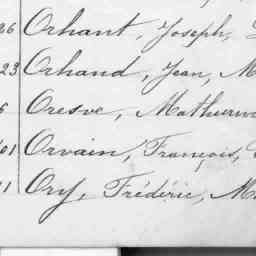 26 Orhant, Joseph,
23 Orhand, Jean, M
Oresve, Mathurin
01 Orvain, François,
1 Ory, Frédéric, M